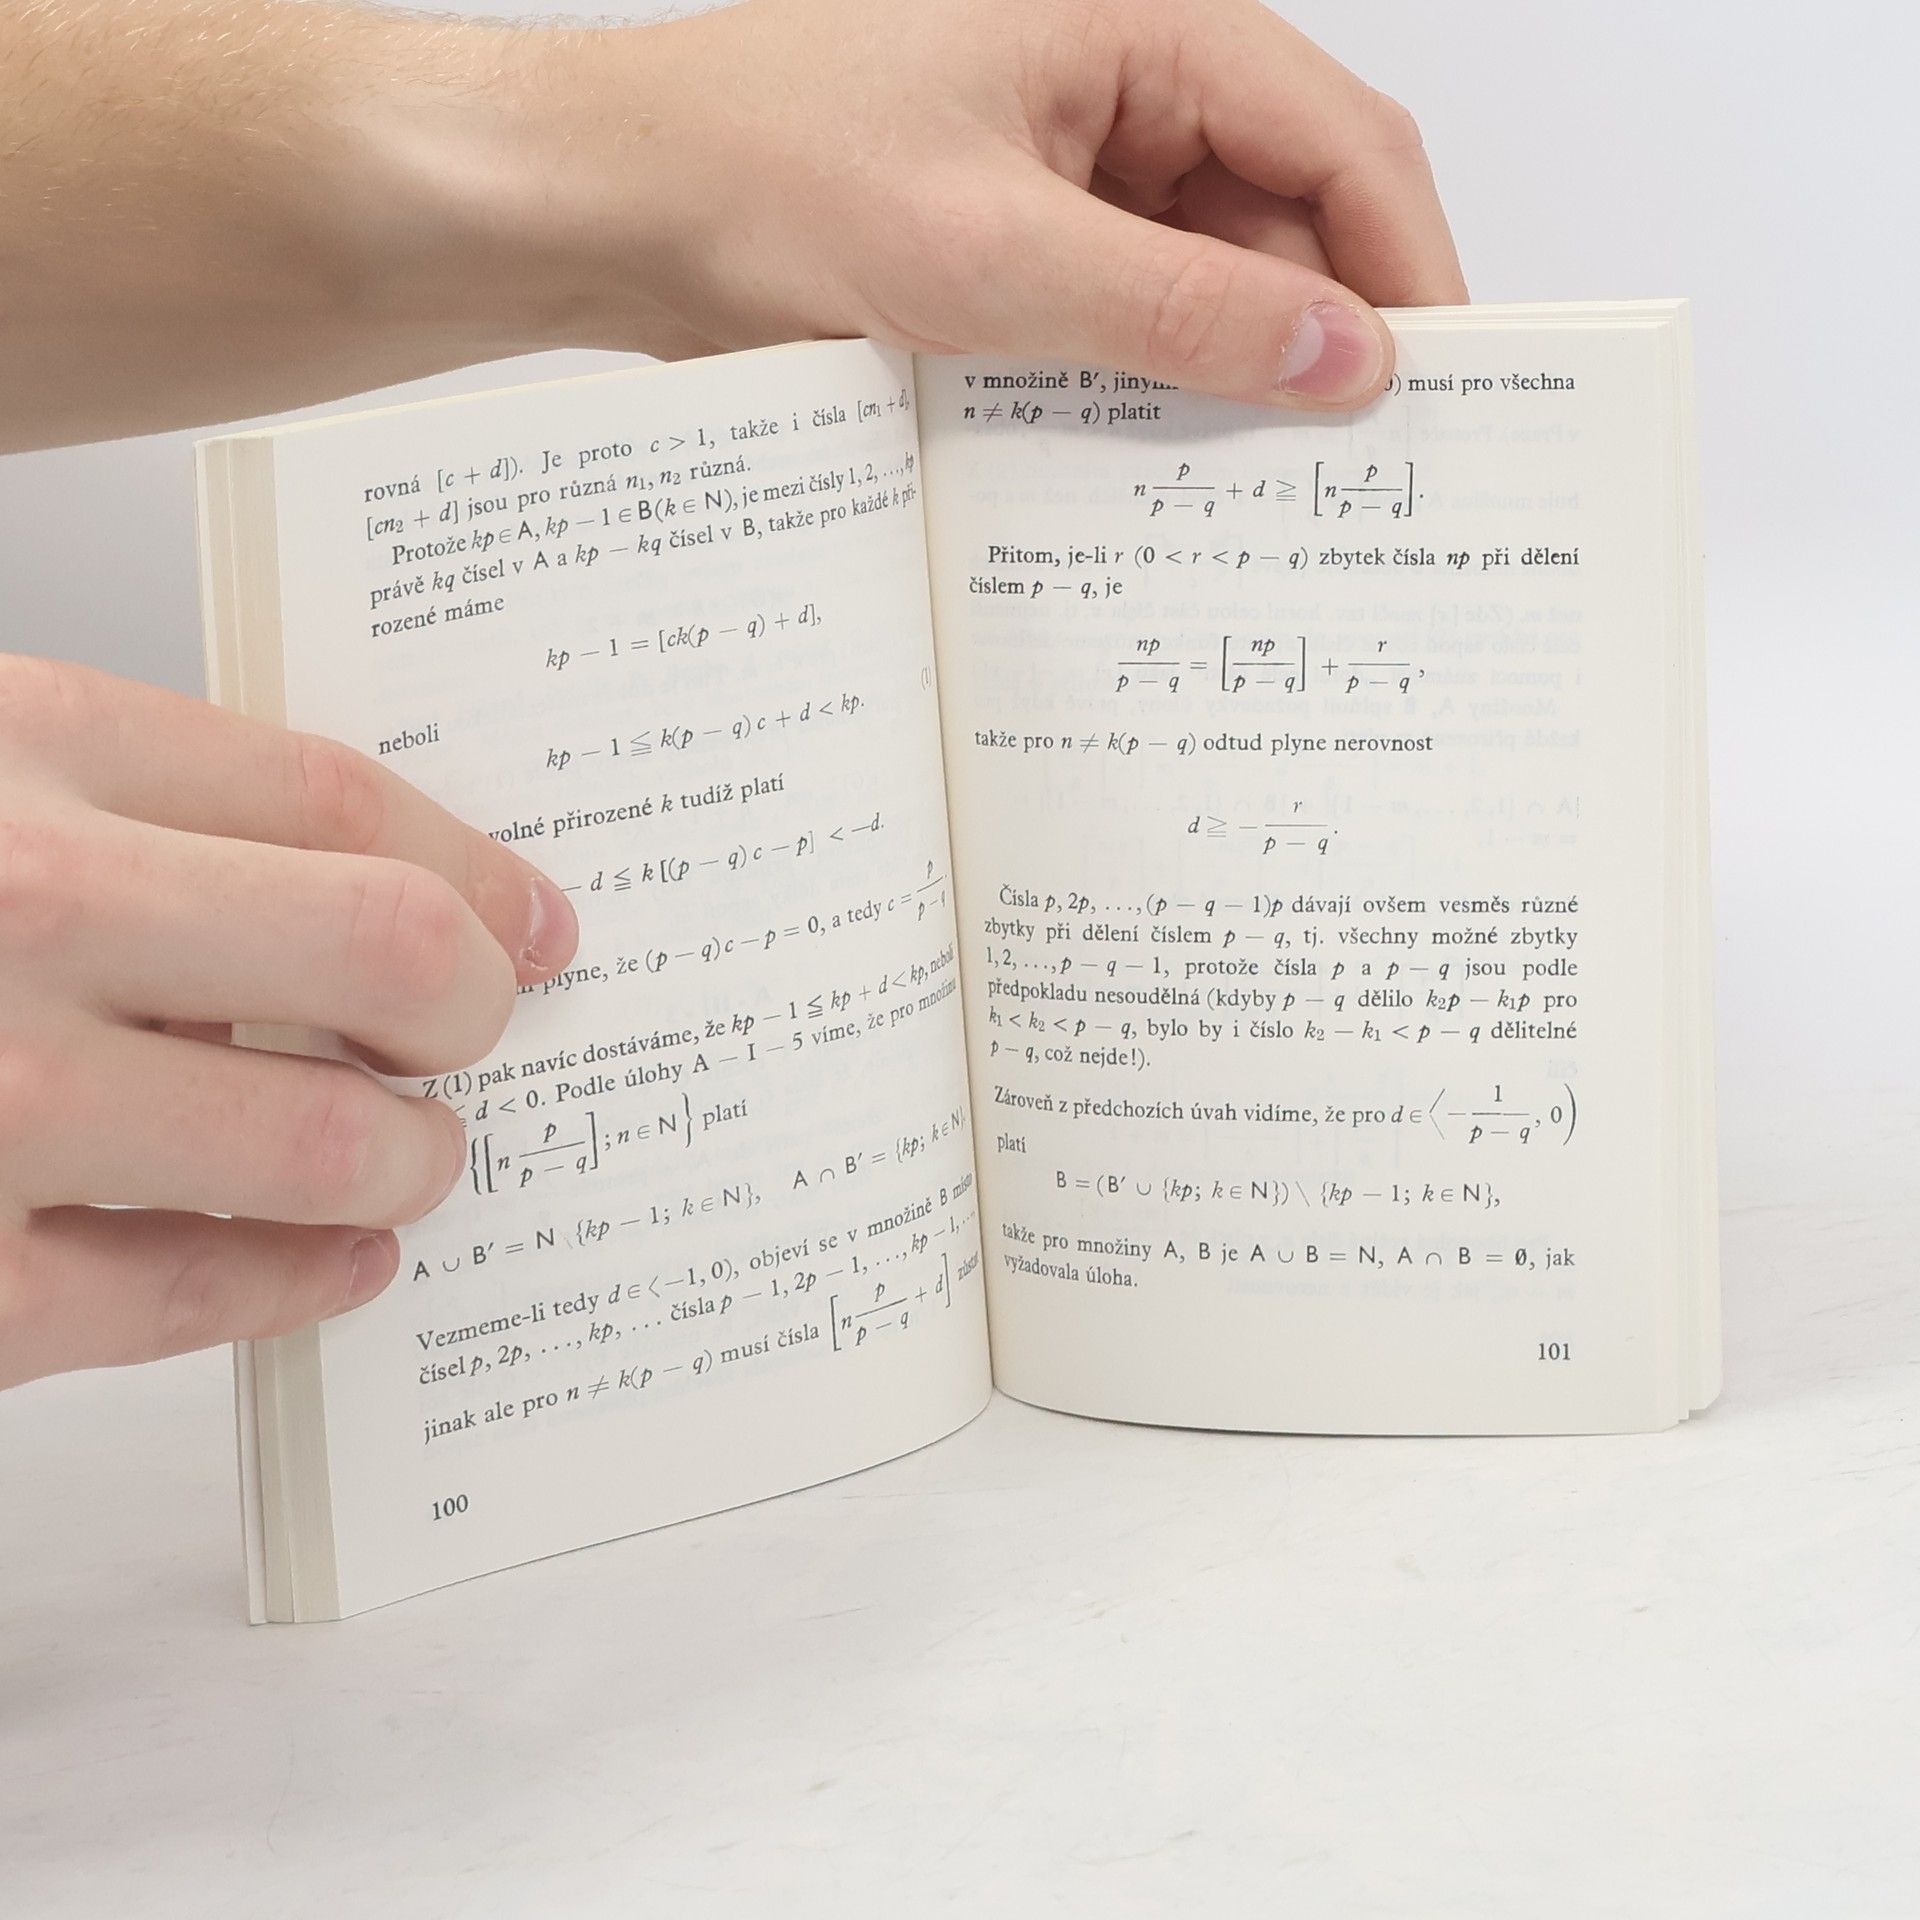 rovná [c + d]). Je proto c > 1, takže i čísla [cn₁ + d],
[cn₂ + d] jsou pro různá n₁, n₂ různá.
Protože kp ∈ A, kp − 1 ∈ B(k ∈ N), je mezi čísly 1, 2, ..., kp
právě kq čísel v A a kp − kq čísel v B, takže pro každé k při-
rozené máme
kp − 1 = [ck(p − q) + d],
neboli
(1)
kp − 1 ≦ k(p − q) c + d < kp.
přirozené k tudíž platí
− d ≦ k [(p − q) c − p] < −d.
plyne, že (p − q) c − p = 0, a tedy c = p/(p − q).
Z (1) pak navíc dostáváme, že kp − 1 ≦ kp + d < kp, neboli
≦ d < 0. Podle úlohy A − I − 5 víme, že pro množinu
{[n p/(p − q)]; n ∈ N} platí
A ∪ B′ = N \ {kp − 1; k ∈ N}, A ∩ B′ = {kp; k ∈ N}.
Vezmeme-li tedy d ∈ ⟨−1, 0), objeví se v množině B místo
čísel p, 2p, ..., kp, ... čísla p − 1, 2p − 1, ..., kp − 1, ...
jinak ale pro n ≠ k(p − q) musí čísla [n p/(p − q) + d]
100
v množině B′, musí pro všechna
n ≠ k(p − q) platit
n p/(p − q) + d ≧ [n p/(p − q)].
Přitom, je-li r (0 < r < p − q) zbytek čísla np při dělení
číslem p − q, je
np/(p − q) = [np/(p − q)] + r/(p − q),
takže pro n ≠ k(p − q) odtud plyne nerovnost
d ≧ − r/(p − q).
Čísla p, 2p, ..., (p − q − 1)p dávají ovšem vesměs různé
zbytky při dělení číslem p − q, tj. všechny možné zbytky
1, 2, ..., p − q − 1, protože čísla p a p − q jsou podle
předpokladu nesoudělná (kdyby p − q dělilo k₂p − k₁p pro
k₁ < k₂ < p − q, bylo by i číslo k₂ − k₁ < p − q dělitelné
p − q, což nejde!).
Zároveň z předchozích úvah vidíme, že pro d ∈ ⟨− 1/(p − q), 0)
platí
B = (B′ ∪ {kp; k ∈ N}) \ {kp − 1; k ∈ N},
takže pro množiny A, B je A ∪ B = N, A ∩ B = ∅, jak
vyžadovala úloha.
101